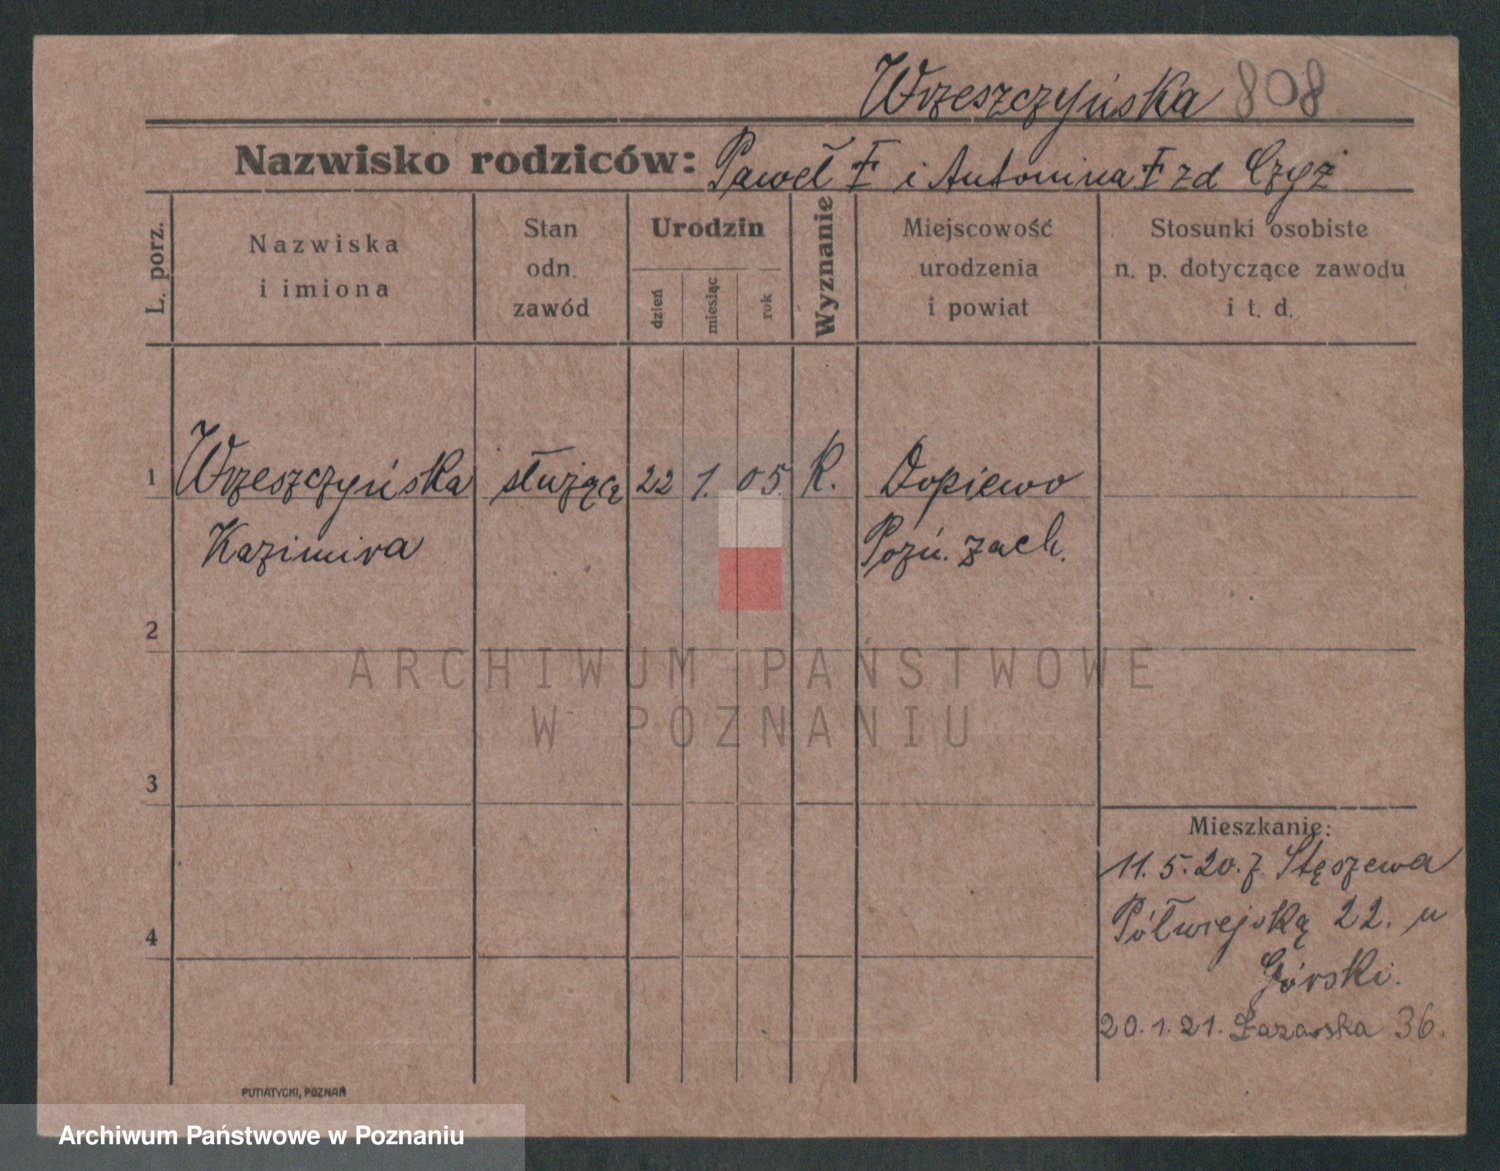 Wrzeszczyńska 808
Nazwisko rodziców: Paweł i Antonina zd Czyż
L. porz.
Nazwiska
i imiona
Stan
odn.
zawód
Urodzin
dzień
miesiąc
rok
Wyznanie
Miejscowość
urodzenia
i powiat
Stosunki osobiste
n. p. dotyczące zawodu
i t. d.
1 Wrzeszczyńska służąca 22 1. 05. R. Dopiewo
Kazimira Pozń. zach.
2
ARCHIWUM PAŃSTWOWE
W POZNANIU
3
Mieszkanie:
11.5.20. z Stęszewa
4 Półwiejską 22. u
Górski.
20.1.21. Łazarska 36.
PUTIATYCKI, POZNAŃ
Archiwum Państwowe w Poznaniu